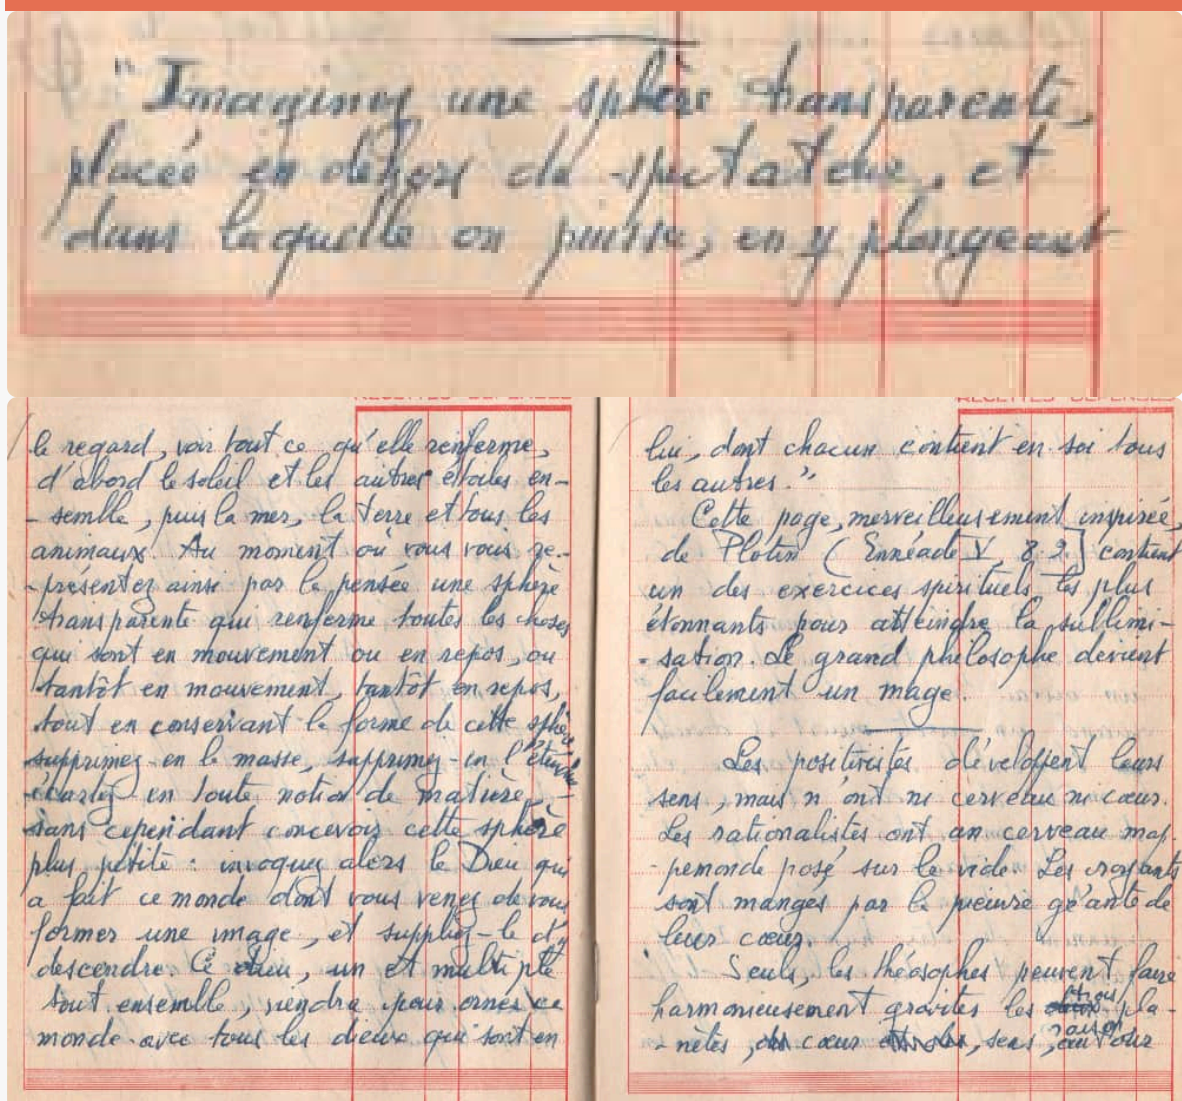 "Imaginez une sphère transparente,
placée en dehors du spectateur, et
dans laquelle on puisse, en y plongeant
RECETTES DÉPENSES
le regard, voir tout ce qu'elle renferme,
d'abord le soleil et les autres étoiles en-
-semble, puis la mer, la terre et tous les
animaux. Au moment où vous vous re-
-présentez ainsi par la pensée une sphère
transparente qui renferme toutes les choses
qui sont en mouvement ou en repos, ou
tantôt en mouvement, tantôt en repos,
tout en conservant la forme de cette sphère
supprimez-en la masse, supprimez-en l'étendue
écartez-en toute notion de matière,
sans cependant concevoir cette sphère
plus petite : invoquez alors le Dieu qui
a fait ce monde dont vous venez de vous
former une image, et suppliez-le d'y
descendre. Ce dieu, un et multiple
tout ensemble, viendra pour orner ce
monde avec tous les dieux qui sont en
RECETTES DÉPENSES
lui, dont chacun contient en soi tous
les autres."
Cette page, merveilleusement inspirée,
de Plotin (Ennéade V 8.9.] contient
un des exercices spirituels les plus
étonnants pour atteindre la sublimi-
-sation. Le grand philosophe devient
facilement un mage.
Les positivistes développent leurs
sens, mais n'ont ni cerveau ni cœur.
Les rationalistes ont un cerveau map-
-pemonde posé sur le vide. Les croyants
sont mangés par la pieuvre géante de
leur cœur.
Seuls, les théosophes peuvent faire
harmonieusement graviter les trois pla-
-nètes, cœur, sens, raison autour